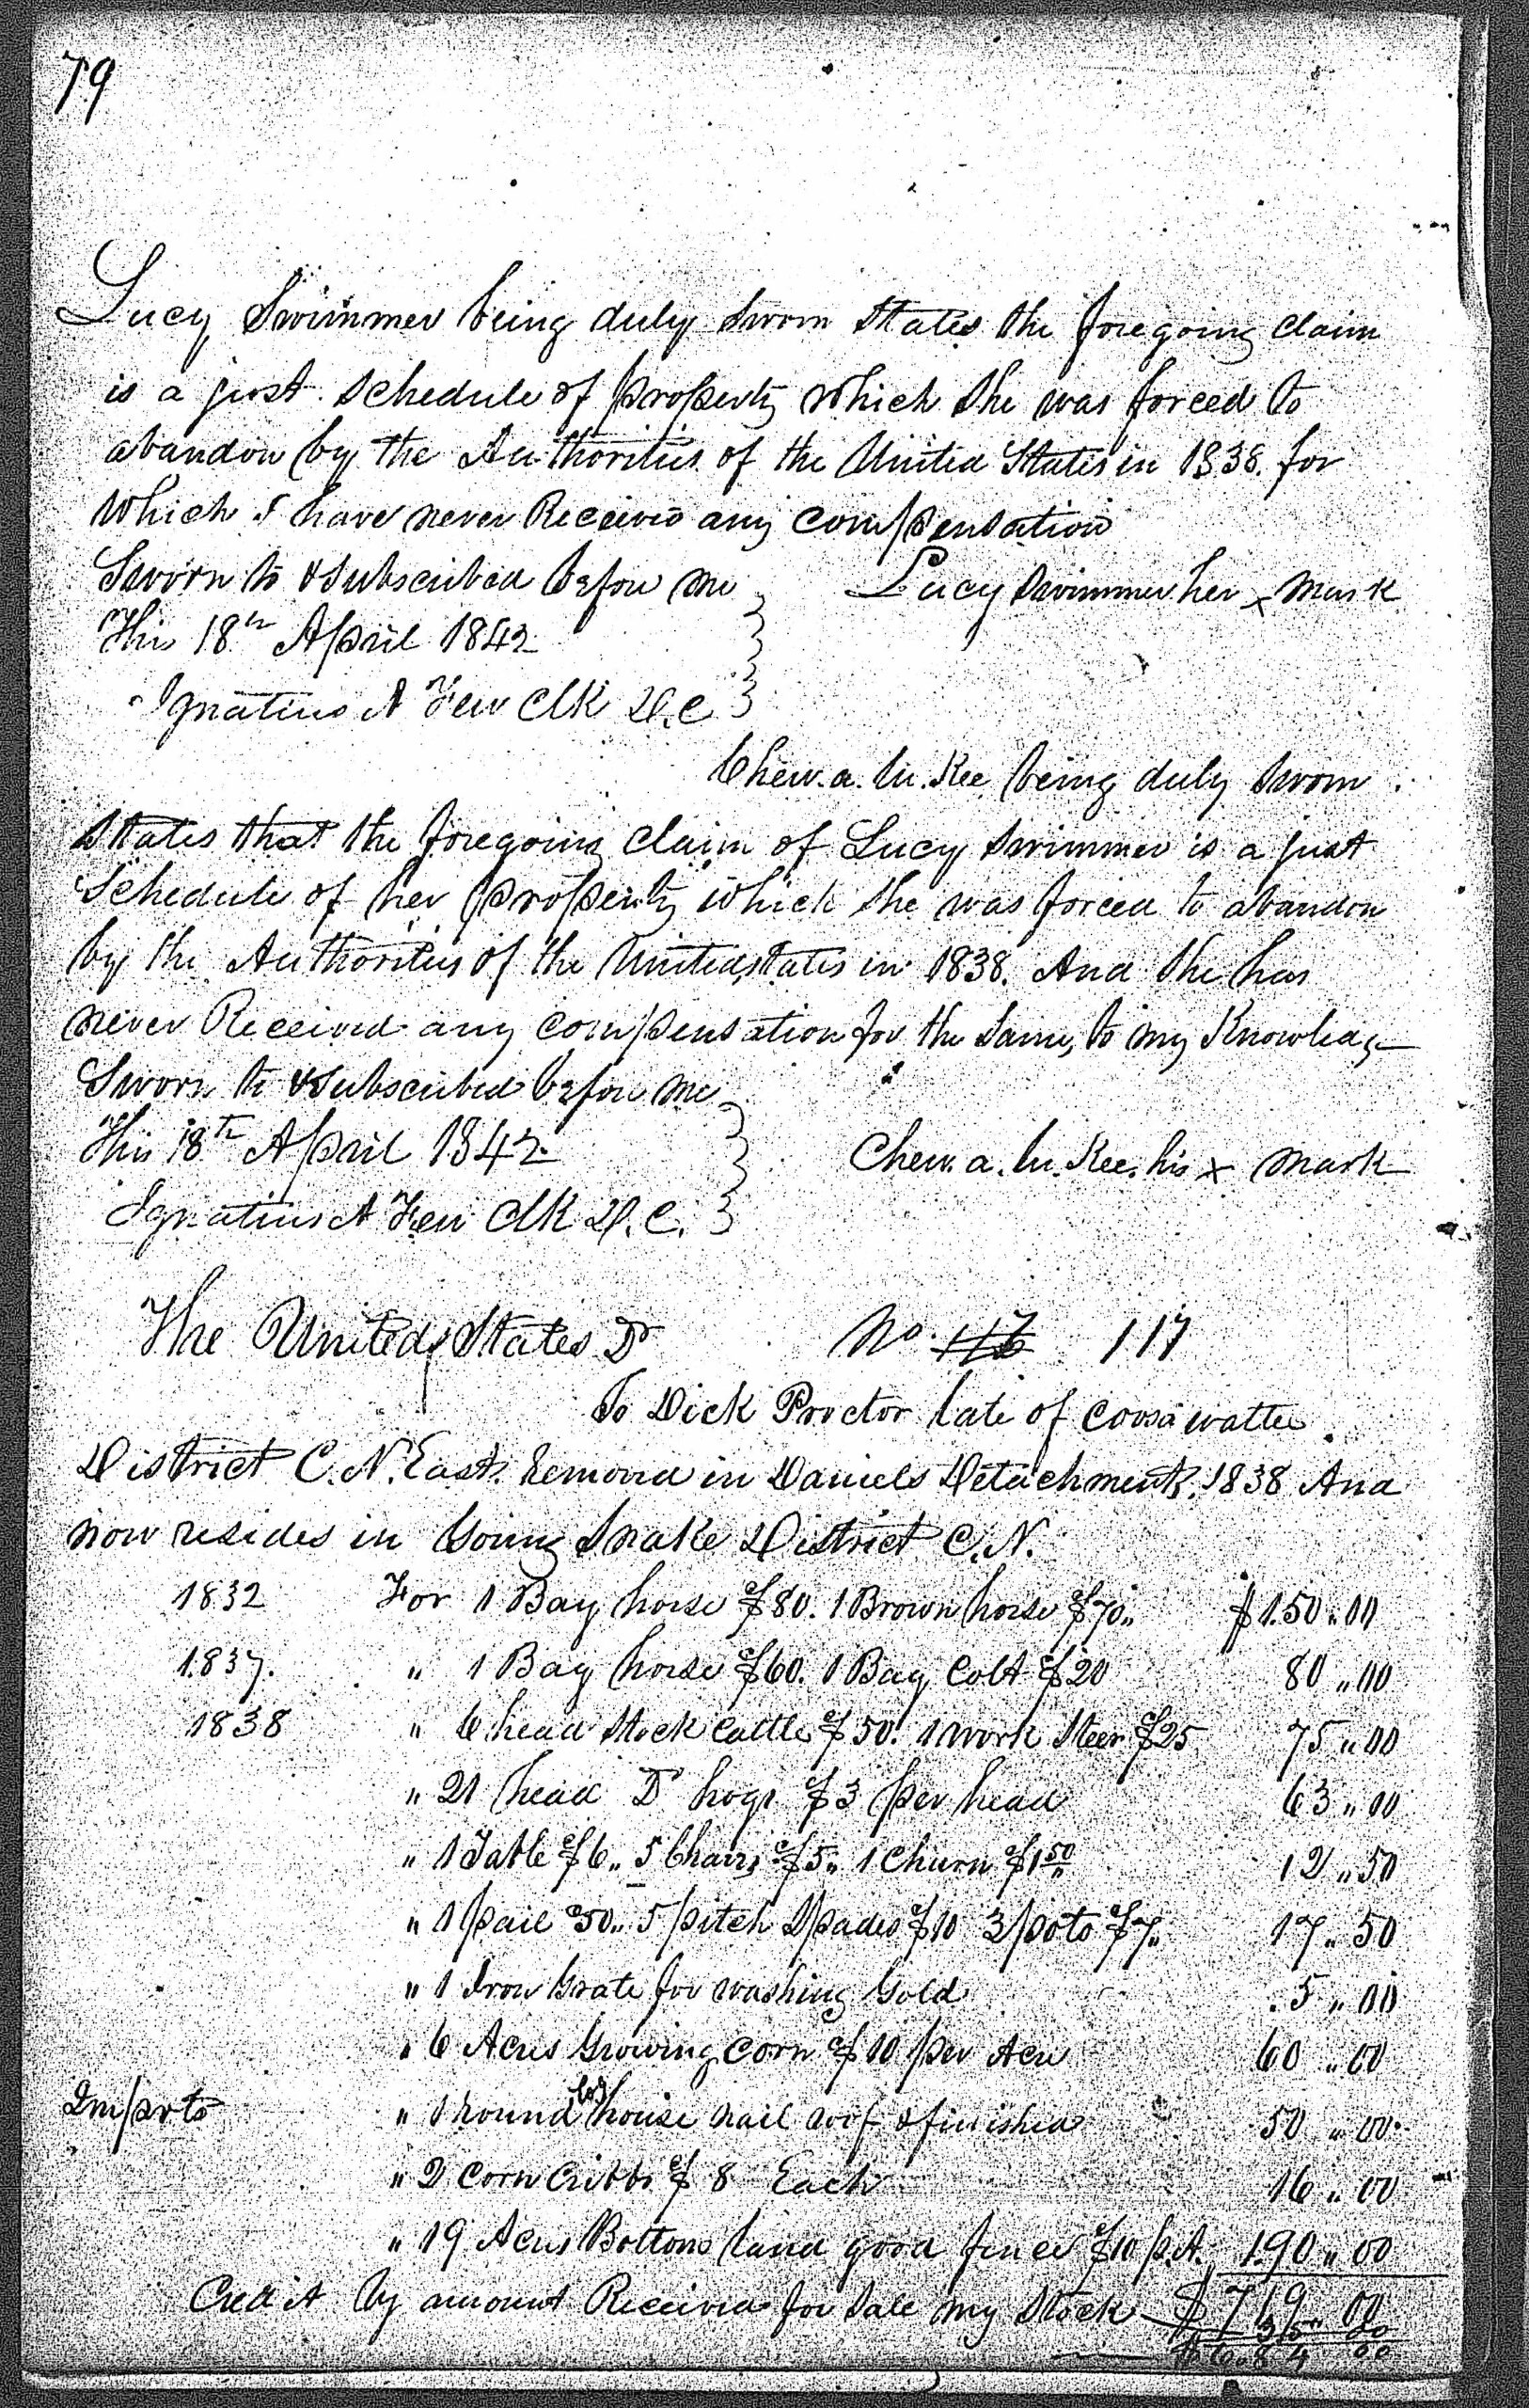 79
Lucy Swimmer being duly sworn states the foregoing claim
is a just schedule of property which she was forced to
abandon by the Authorities of the United States in 1838. for
which I have never Received any compensation
Sworn to & subscribed before me
Lucy Swimmer her x mark
This 18th April 1842
Ignatius A Few Clk D.C.
Chew.a.lu.kee being duly sworn
states that the foregoing claim of Lucy Swimmer is a just
Schedule of her property which she was forced to abandon
by the Authorities of the United States in 1838. And she has
never Received any compensation for the same, to my Knowledge
Sworn to & subscribed before me
This 18th April 1842
Chew.a.lu.kee. his x mark
Ignatius A Few Clk D.C.
The United States Dr No. 117
To Dick Proctor late of Coosawattee
District C.N. East. Removed in Daniels Detachment. 1838 And
now resides in Going Snake District C.N.
1832 For 1 Bay horse $80. 1 Brown horse $70.. $150..00
1837. " 1 Bay horse $60. 1 Bay Colt $20 80..00
1838 " 6 head stock cattle $50. 1 work Steer $25 75..00
" 21 head Do hogs $3 per head 63..00
" 1 Table $6.. 5 Chairs $5.. 1 Churn $1.50 12..50
" 1 pail 50.. 5 pitch Spades $10 3 pots $7.. 17..50
" 1 Iron Grate for washing Gold 5..00
" 6 Acres Growing Corn $10 per Acre 60..00
Imprts " 1 round log house nail roof & finished 50..00
" 2 Corn Cribbs $8 Each 16..00
" 19 Acres Bottom land good fence $10 p.A. 190..00
Credit by amount Received for sale my stock $719..00
35 00
$684 00